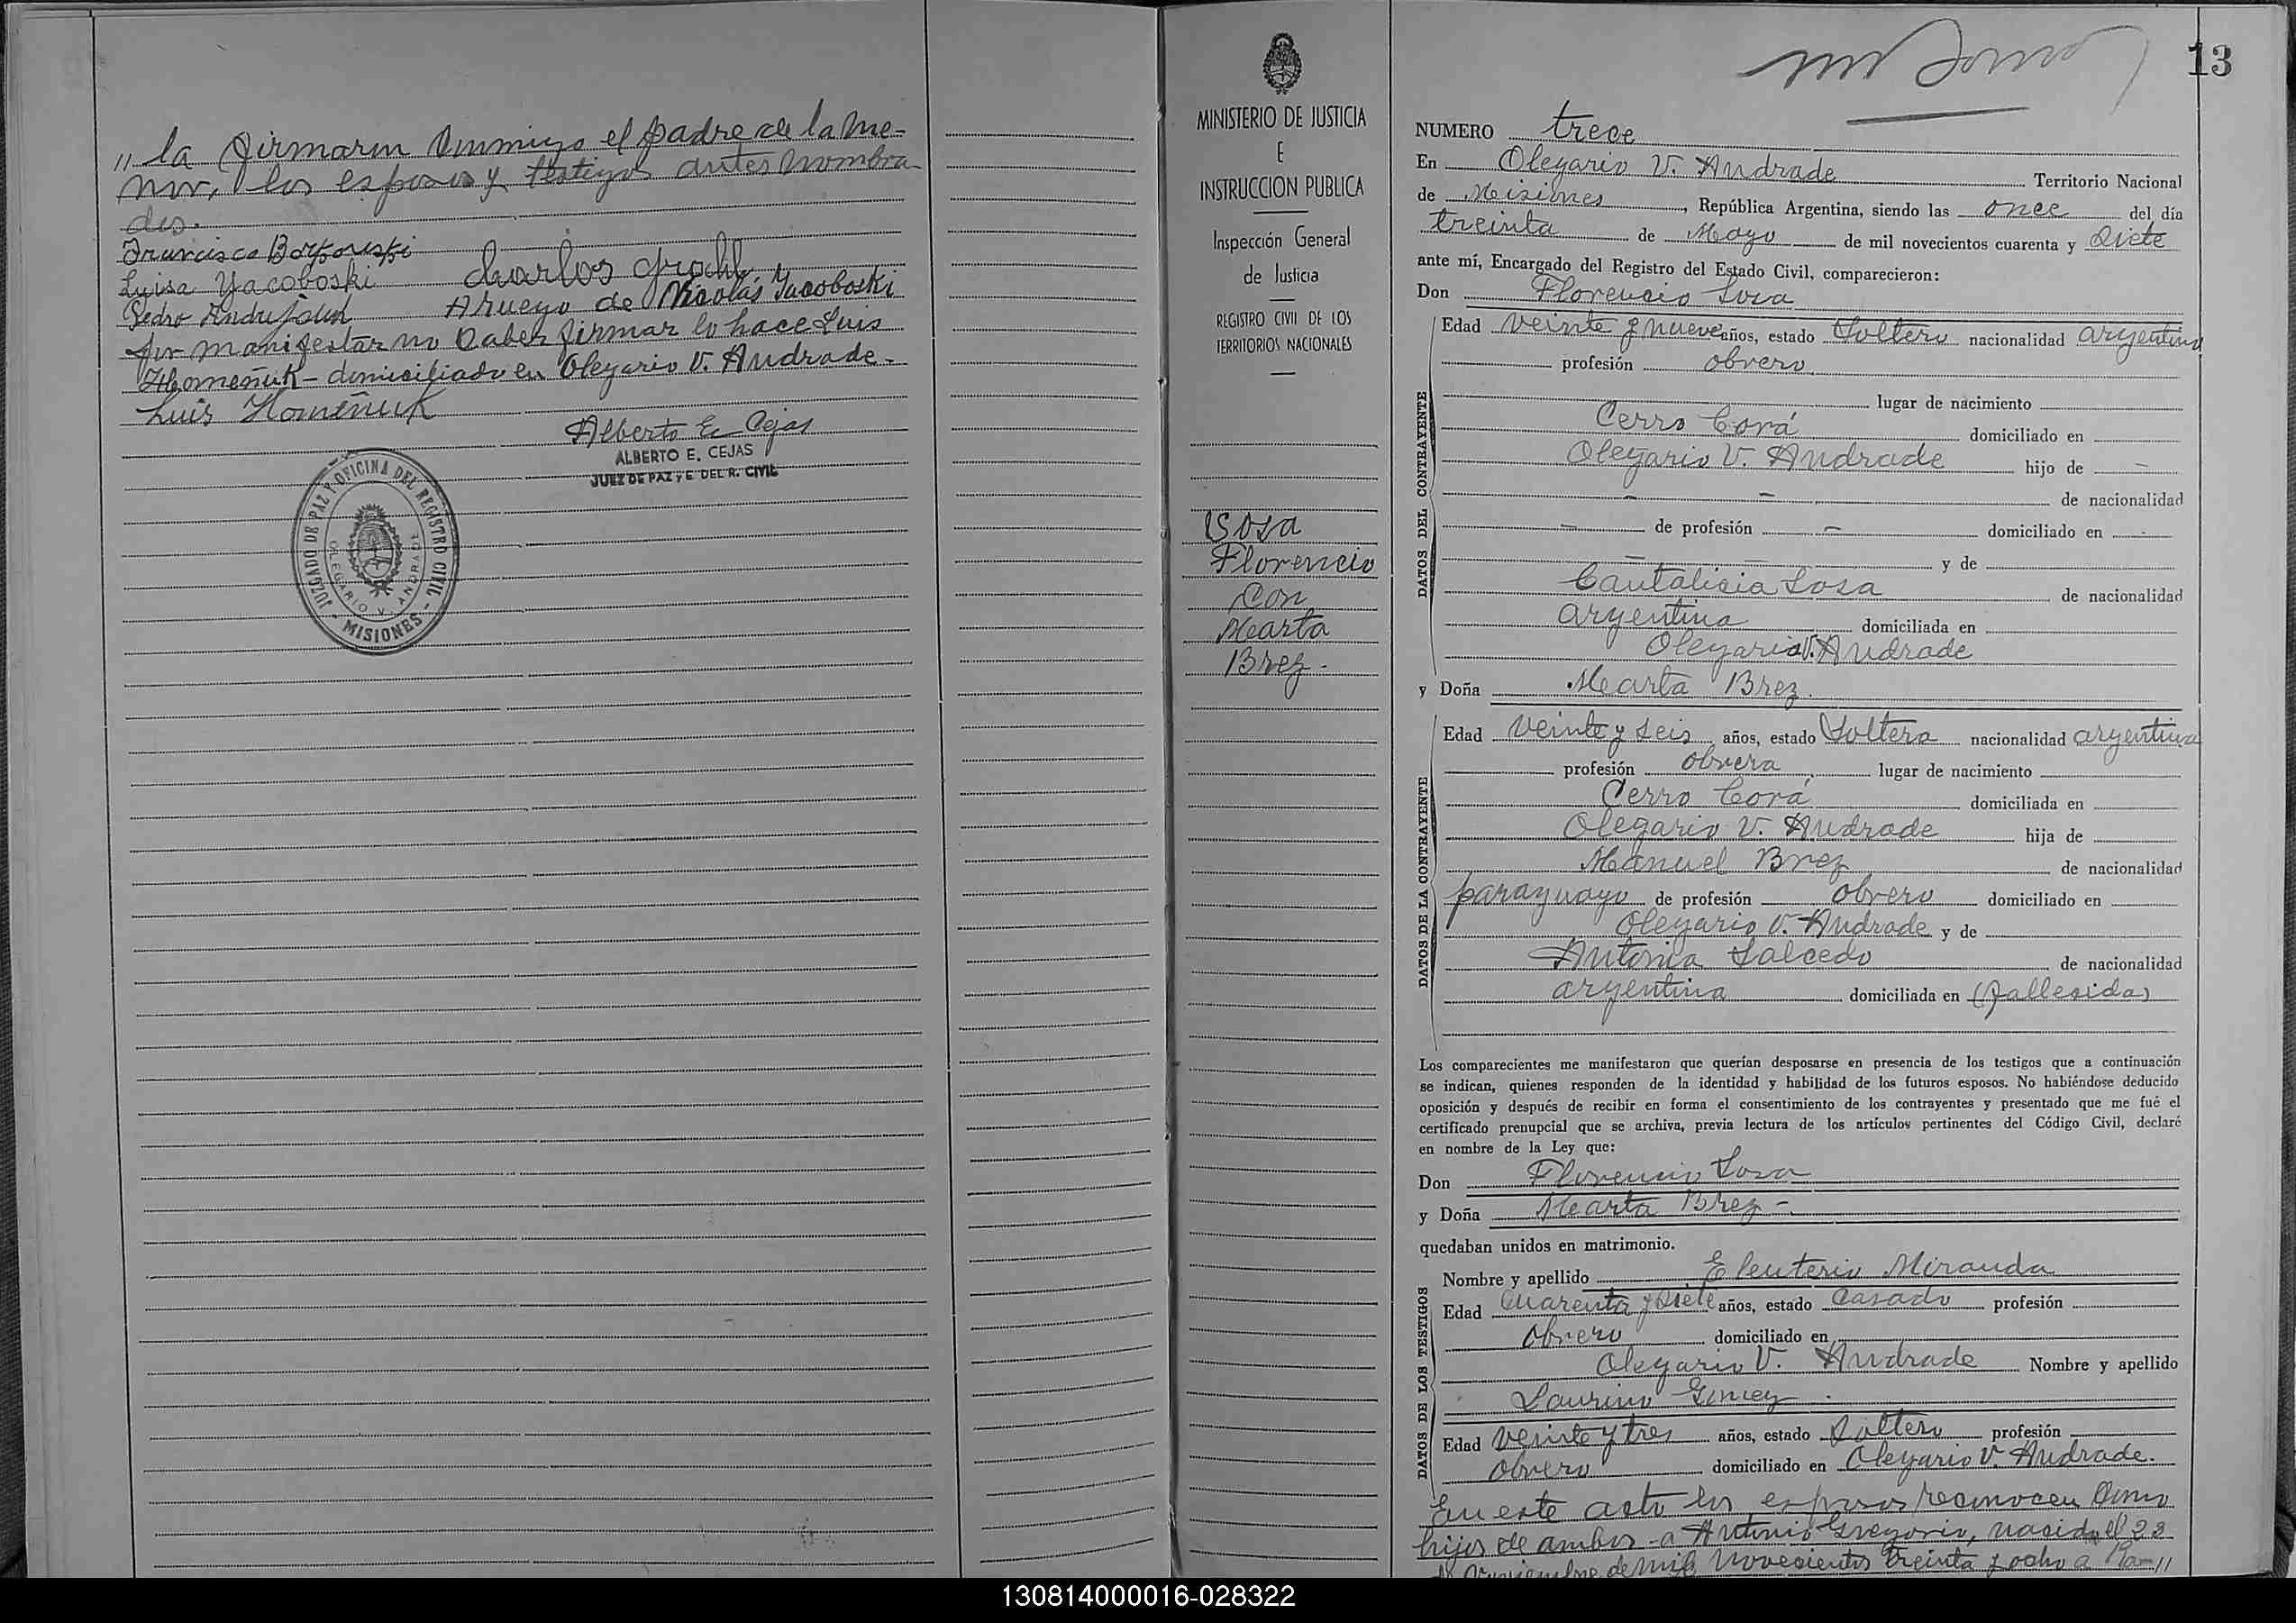 " la firmaron conmigo el padre de la me-
nor, los esposos y testigos antes nombra
dos.
Luisa Yacoboski Carlos
Pedro Arruego de Nicolás Yacoboski
por manifestar no saber firmar lo hace Luis
Homeñuk - domiciliado en Olegario V. Andrade.-
Luis Homeñuk
Alberto E. Cejas
ALBERTO E. CEJAS
JUEZ DE PAZ y E. DEL R. CIVIL
JUZGADO DE PAZ Y OFICINA DEL REGISTRO CIVIL - MISIONES -
OLEGARIO V. ANDRADE
MINISTERIO DE JUSTICIA
E
INSTRUCCION PUBLICA
Inspección General
de Justicia
REGISTRO CIVIL DE LOS
TERRITORIOS NACIONALES
Sosa
Florencio
con
Marta
Brez -
13
NUMERO trece
En Olegario V. Andrade Territorio Nacional
de Misiones, República Argentina, siendo las once del día
treinta de Mayo de mil novecientos cuarenta y siete
ante mí, Encargado del Registro del Estado Civil, comparecieron:
Don Florencio Sosa
DATOS DEL CONTRAYENTE
Edad veinte y nueve años, estado soltero nacionalidad argentino
profesión obrero
lugar de nacimiento
Cerro Corá domiciliado en
Olegario V. Andrade hijo de -
- - de nacionalidad
- de profesión - domiciliado en -
- - y de
Cantalicia Sosa de nacionalidad
argentina domiciliada en
Olegario V. Andrade
y Doña Marta Brez
DATOS DE LA CONTRAYENTE
Edad veinte y seis años, estado soltera nacionalidad argentina
profesión obrera lugar de nacimiento
Cerro Corá domiciliada en
Olegario V. Andrade hija de
Manuel Brez de nacionalidad
paraguayo de profesión obrero domiciliado en
Olegario V. Andrade y de
Antonia Salcedo de nacionalidad
argentina domiciliada en (fallesida)
Los comparecientes me manifestaron que querían desposarse en presencia de los testigos que a continuación
se indican, quienes responden de la identidad y habilidad de los futuros esposos. No habiéndose deducido
oposición y después de recibir en forma el consentimiento de los contrayentes y presentado que me fué el
certificado prenupcial que se archiva, previa lectura de los artículos pertinentes del Código Civil, declaré
en nombre de la Ley que:
Don Florencio Sosa
y Doña Marta Brez -
quedaban unidos en matrimonio.
DATOS DE LOS TESTIGOS
Nombre y apellido Eleuterio Miranda
Edad cuarenta y siete años, estado casado profesión
obrero domiciliado en
Olegario V. Andrade Nombre y apellido
Laurino
Edad veinte y tres años, estado soltero profesión
obrero domiciliado en Olegario V. Andrade.
En este acto los esposos reconocen como
hijos de ambos - a Antonio Gregorio, nacido el 28
de noviembre de mil novecientos treinta y ocho a "
130814000016-028322